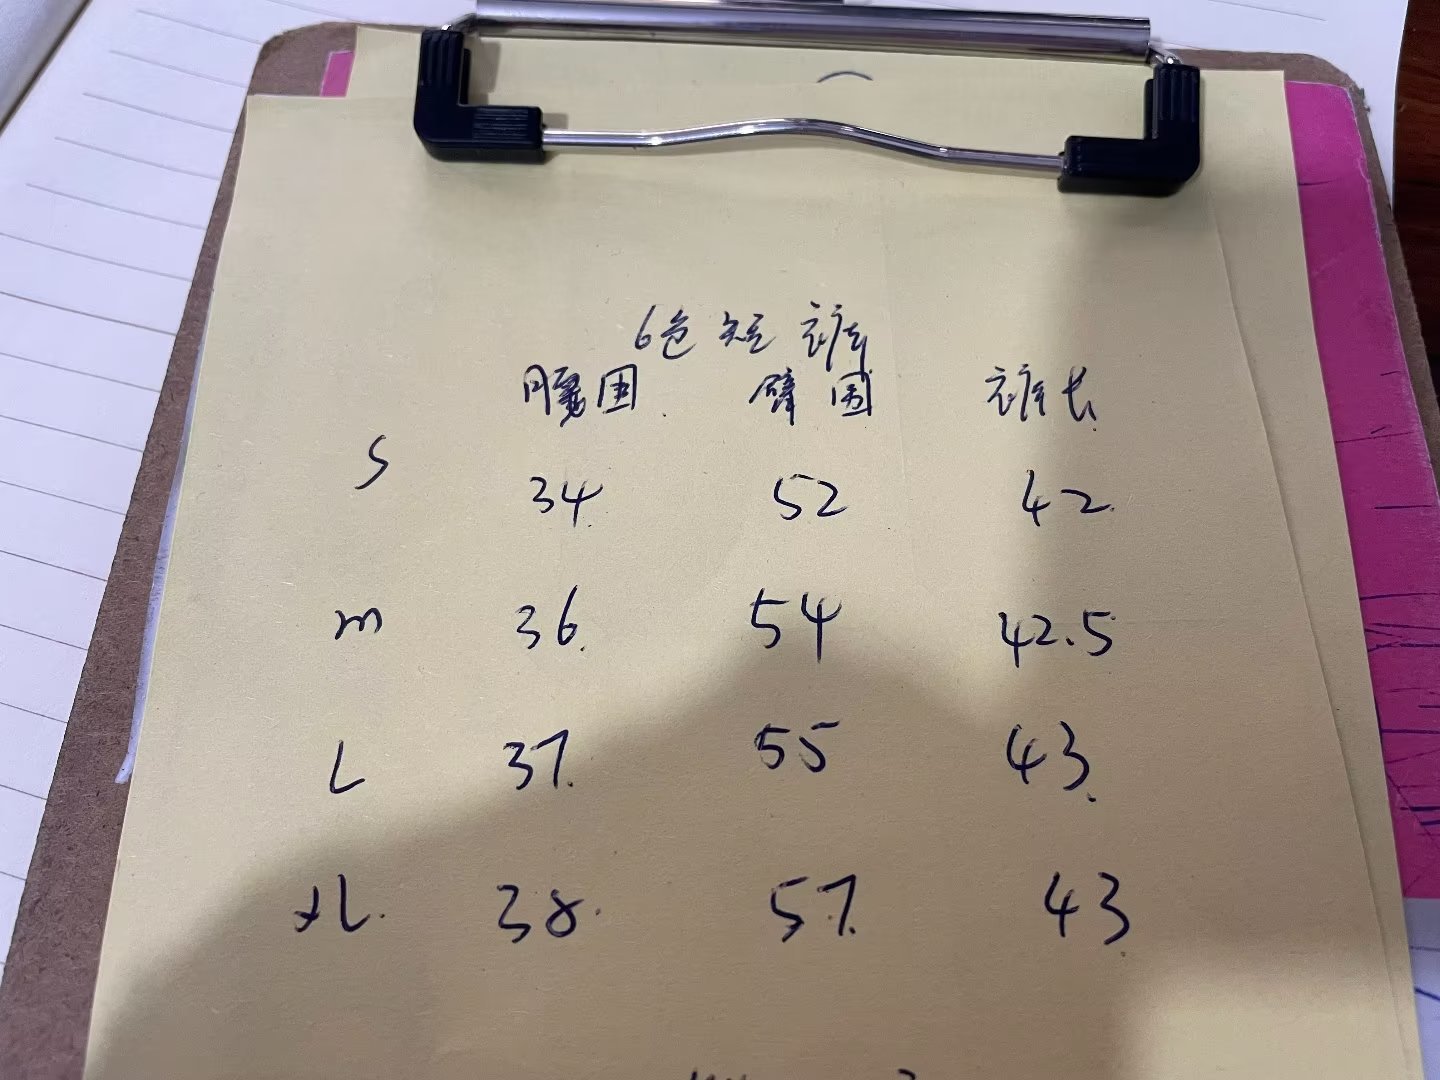 6色短裤
腰围 臂围 裤长
S 34 52 42
m 36 54 42.5
L 37 55 43
XL 38 57 43